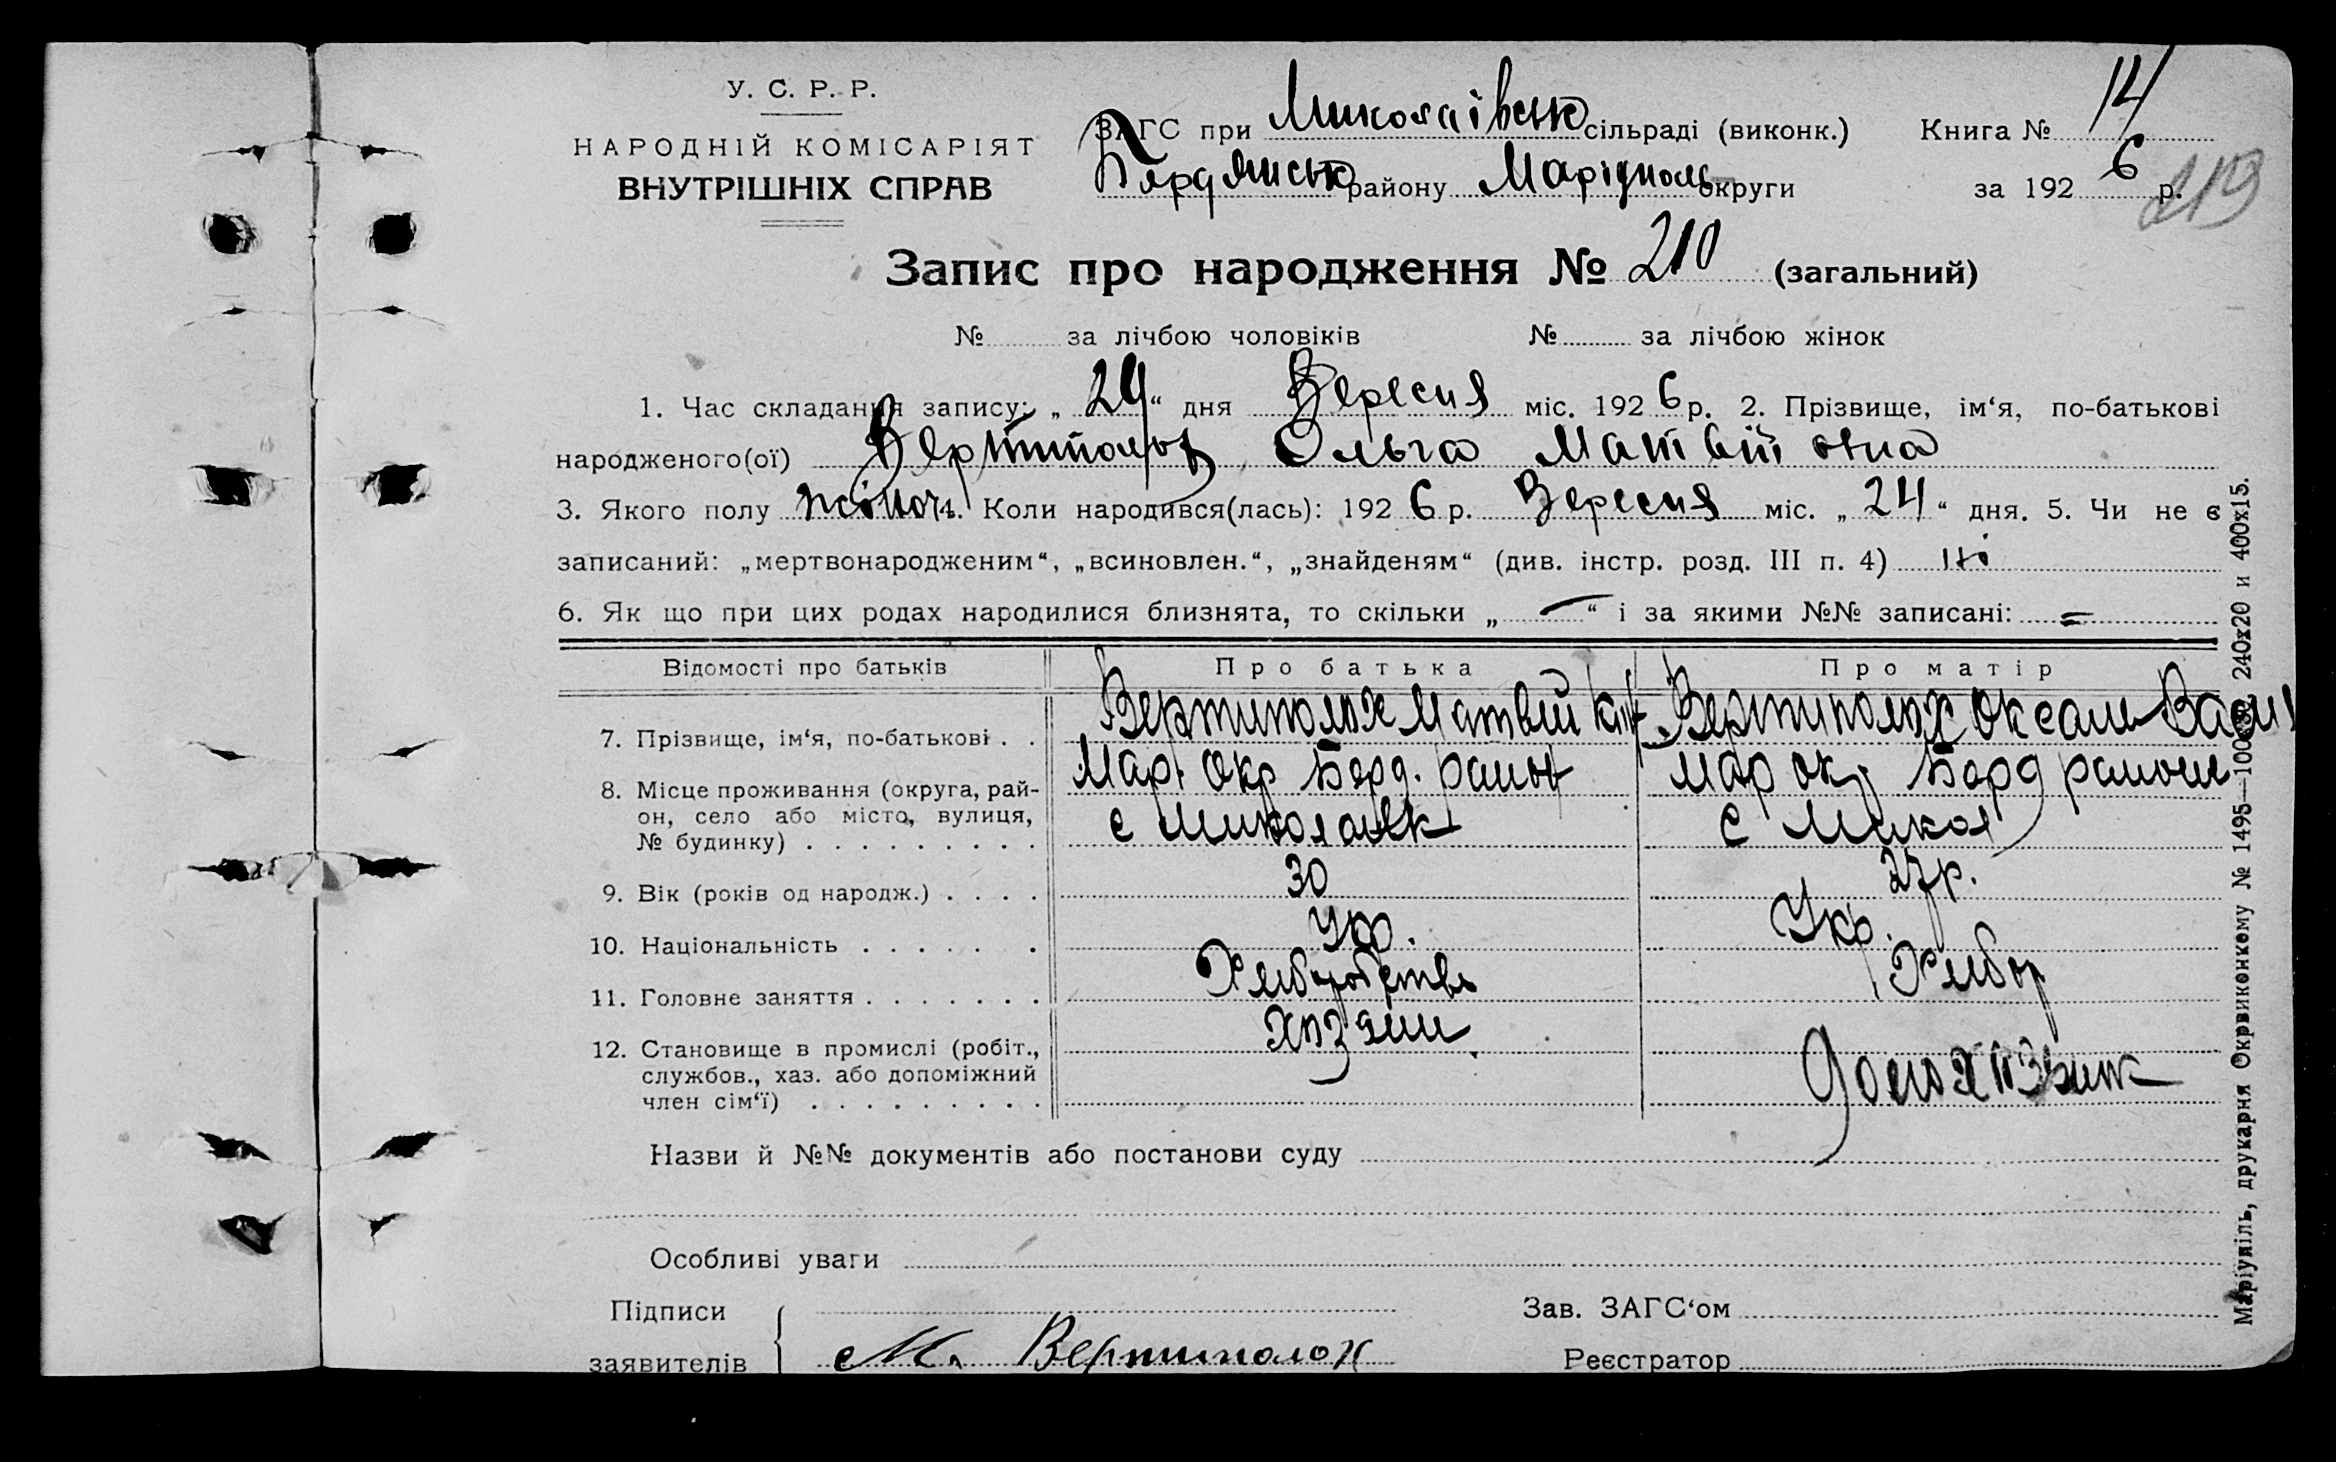 У. С. Р. Р.
НАРОДНІЙ КОМІСАРІЯТ
ВНУТРІШНІХ СПРАВ
ЗАГС при Миколаівськ сільраді (виконк.) Книга № 14
Бердянськ району Маріуполь округи за 192 6 р.
219
Запис про народження № 210 (загальний)
№ за лічбою чоловіків № за лічбою жінок
1. Час складання запису: „ 24 “ дня Вересня міс. 192 6 р. 2. Прізвище, ім‘я, по-батькові
народженого(ої) Вертиполох Ольга Матвіївна
3. Якого полу жіноч. Коли народився(лась): 192 6 р. Вересня міс. „ 24 “ дня. 5. Чи не є
записаний: „мертвонародженим“, „всиновлен.“, „знайденям“ (див. інстр. розд. III п. 4) ні
6. Як що при цих родах народилися близнята, то скільки „ — “ і за якими №№ записані: =
Відомості про батьків Про батька Про матір
7. Прізвище, ім‘я, по-батькові . . Вертиполох Матвій Вертиполох Оксана Васил
8. Місце проживання (округа, рай- Мар. окр Берд. район Мар ок. Берд район
он, село або місто, вулиця, с Миколаівк с Микол
№ будинку) . . . . . . . . .
9. Вік (років од народж.) . . . . 30 27р.
10. Національність . . . . . . Укр. Укр.
11. Головне заняття . . . . . . . Хлиборобство Хлибор
12. Становище в промислі (робіт., Хозяин
службов., хаз. або допоміжний Домохозяик
член сім‘ї) . . . . . . . . .
Назви й №№ документів або постанови суду
Особливі уваги
Підписи Зав. ЗАГС‘ом
заявителів М. Вертиполох Реєстратор
Маріупіль, друкарня Окрвиконкому № 1495—100 240х20 и 400х15.